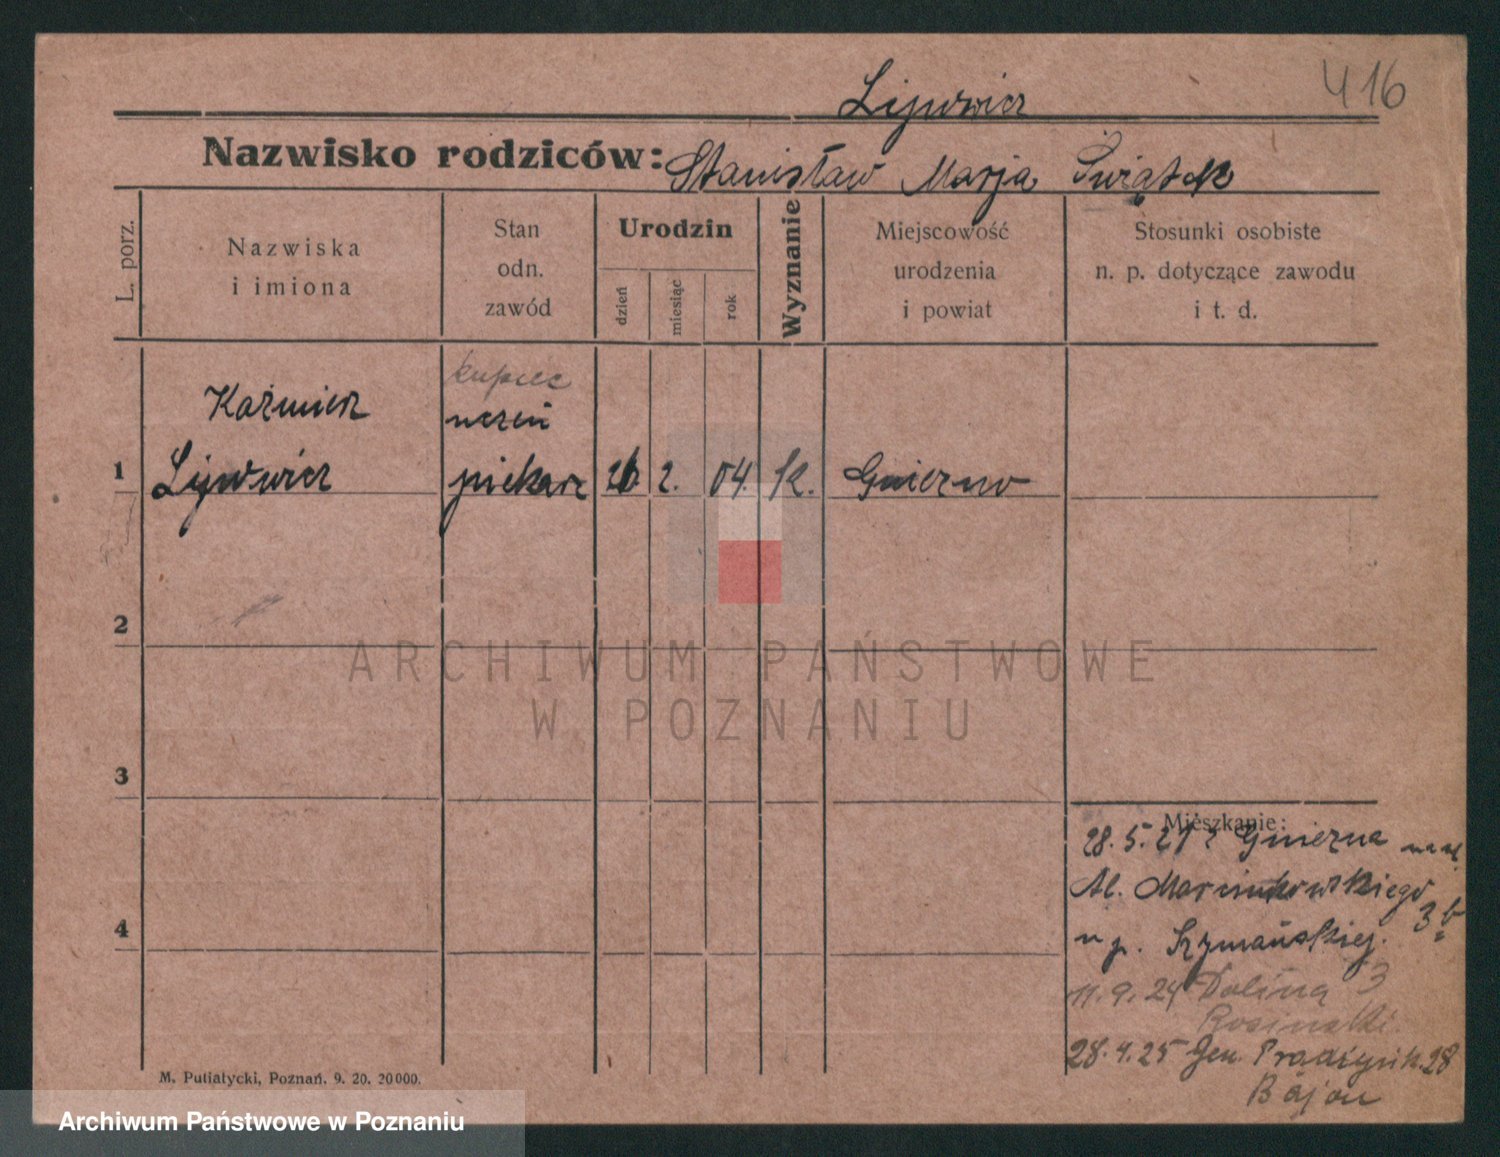 Lijewicz
416
Nazwisko rodziców: Stanisław Marja Świątek
L. porz.
Nazwiska
i imiona
Stan
odn.
zawód
Urodzin
dzień
miesiąc
rok
Wyznanie
Miejscowość
urodzenia
i powiat
Stosunki osobiste
n. p. dotyczące zawodu
i t. d.
kupiec
Kaźmierz
uczeń
1
piekarz
2.
04.
K.
Gniezno
2
3
4
ARCHIWUM PAŃSTWOWE
W POZNANIU
Mieszkanie:
28. 5. 21 z Gniezna
Al. Marcinkowskiego
3b
u p. Szymańskiej.
11. 9. 24 Dolina 3
Rosinski.
28. 4. 25 Gen. Prądzyńsk. 28
Bajon
M. Putiatycki, Poznań. 9. 20. 20000.
Archiwum Państwowe w Poznaniu